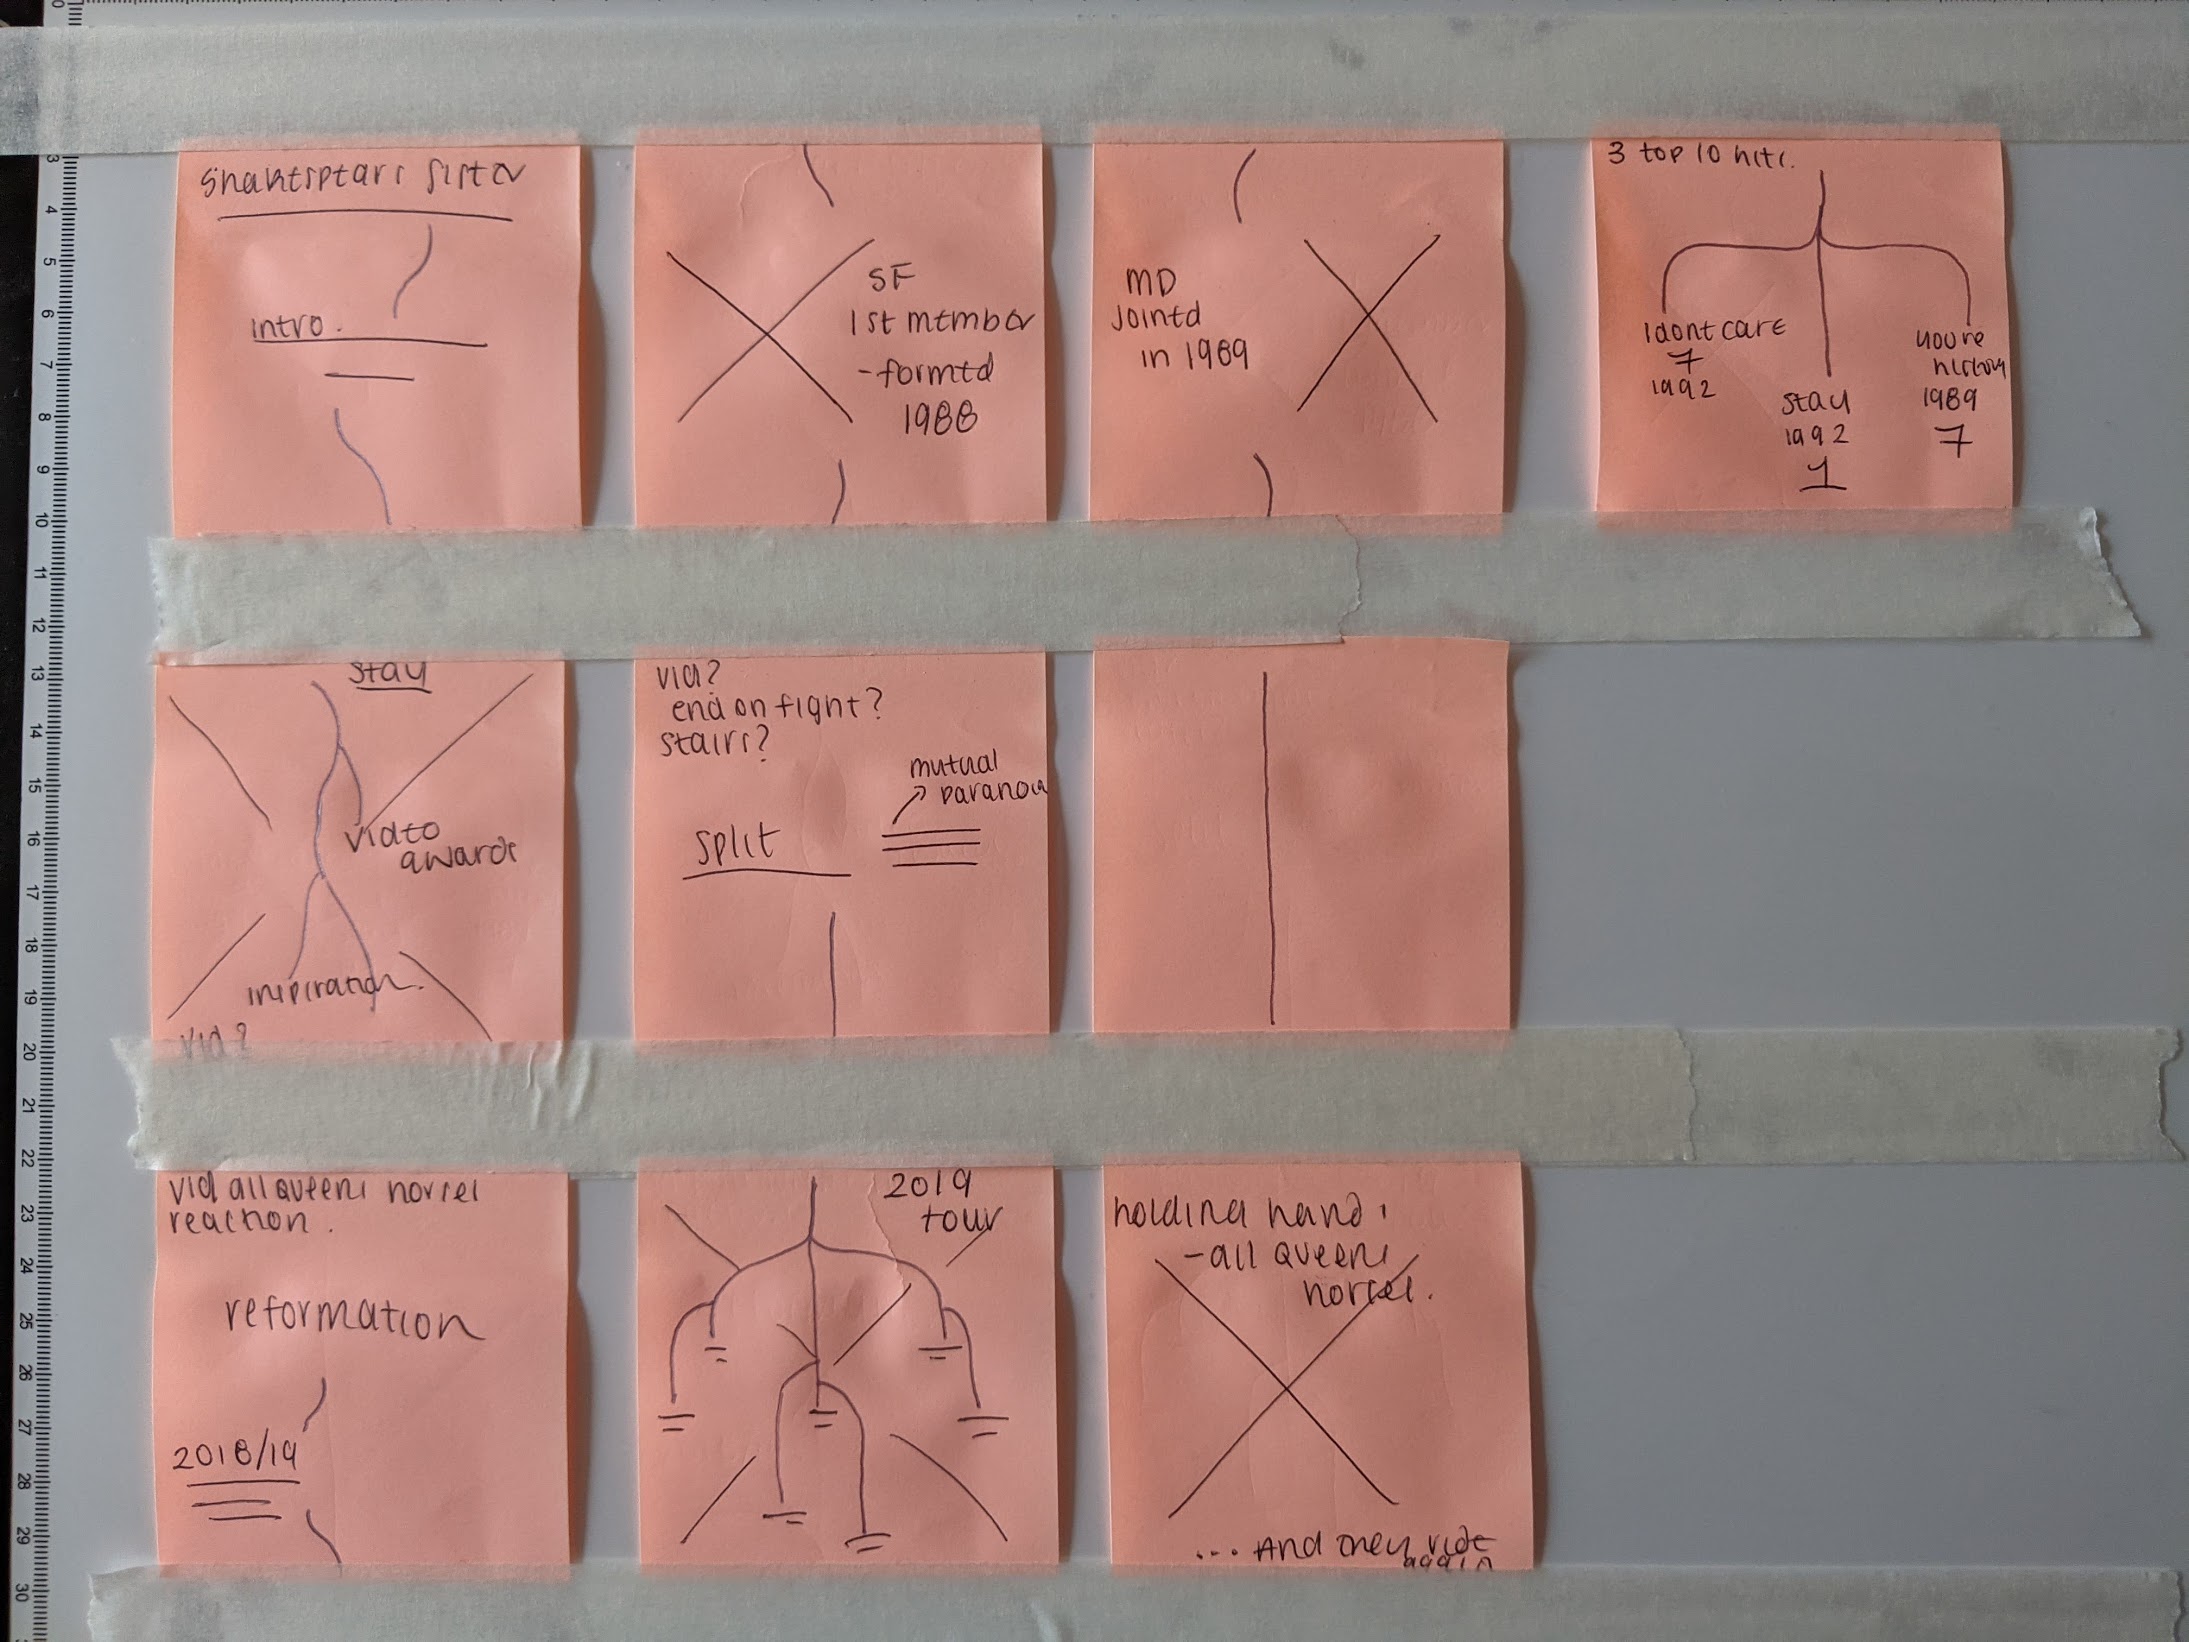 Shakespears sister
intro.
SF
1st member
-formed
1988
MD
Joined
in 1989
3 top 10 hits.
I dont care
7
1992
Stay
1992
1
youre
history
1989
7
stay
video
awards
inspiration.
vid?
vid?
end on fight?
stairs?
mutual
paranoia
split
vid all queens horses
reaction.
reformation
2018/19
2019
tour
holding hands
-all queens
horses.
... And they ride
again
3
4
5
6
7
8
9
10
11
12
13
14
15
16
17
18
19
20
21
22
23
24
25
26
27
28
29
30